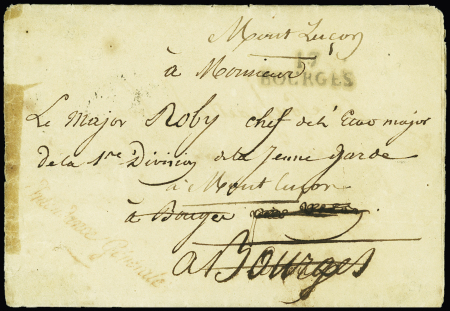 Mont Luçon
à Monsieur
17
BOURGES
Le Major Roby chef de l' Etao major
de la 1re Division de la Jeune Garde
à Mont luçon
à Bourges
à Bourges
Générale